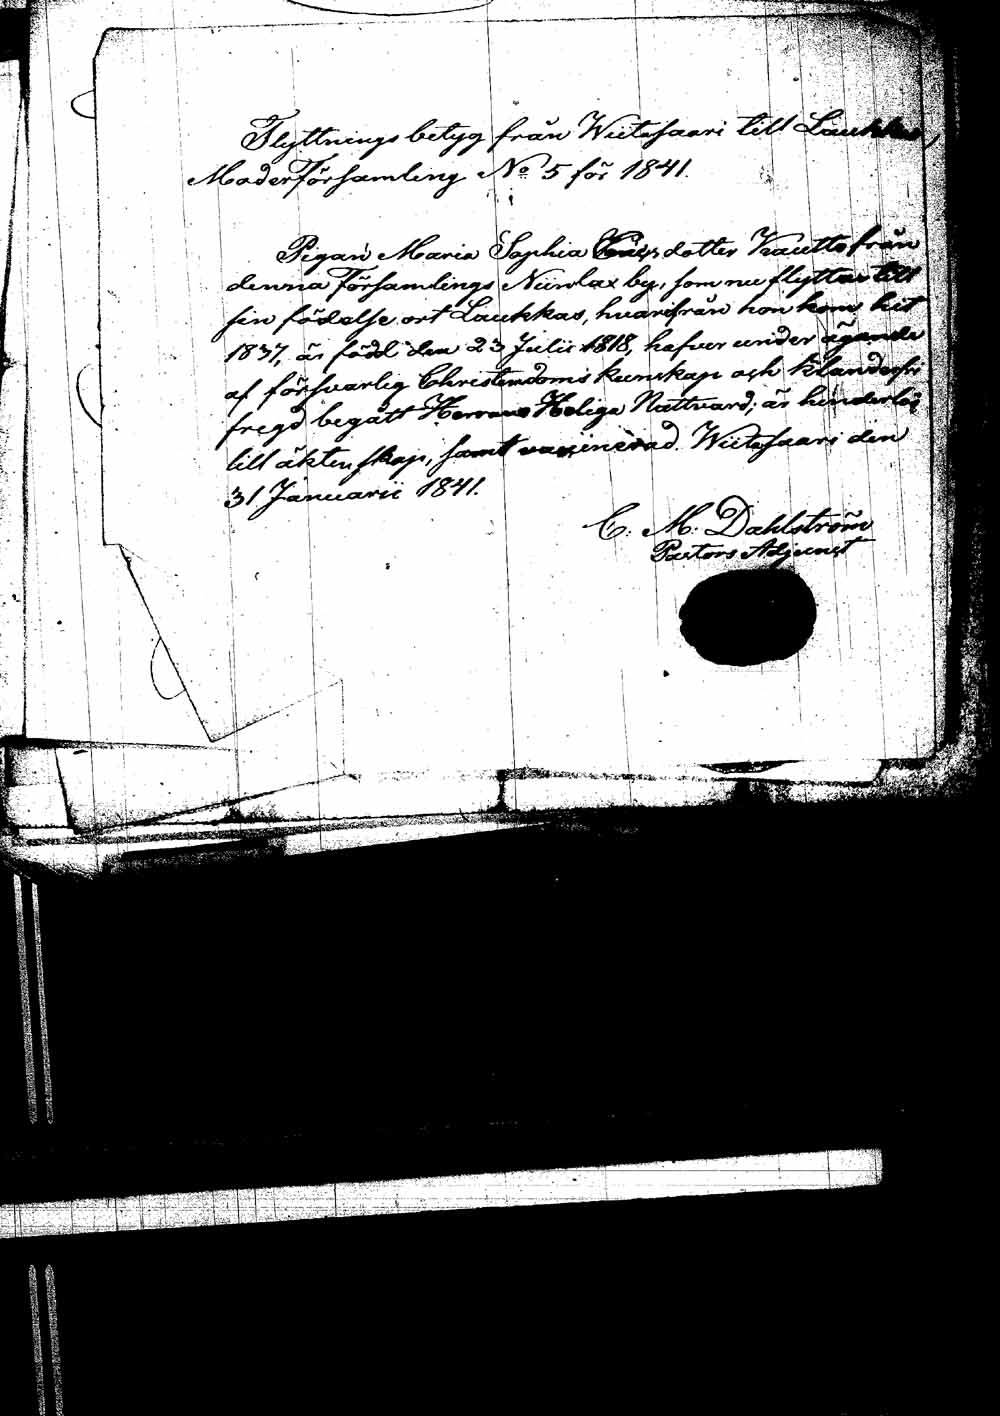 Flyttnings betyg från Wiitasaari till Laukkas,
Moderförsamling No 5 för 1841.
Pigan Maria Sophia dotter Kautto från
denna Församlings Niinlax by, som nu flyttar till
sin födelse ort Laukkas, hvarifrån hon kom hit
1837, är född den 23 Julii 1818, hafver under ägande
af försvarlig Christendoms kunskap och klanderfri
fregd begått Herrans Heliga Nattvard; är hinderlös
till äktenskap, samt vaxinerad. Wiitasaari den
31 Januarii 1841.
C. M. Dahlström
Pastors Adjunct